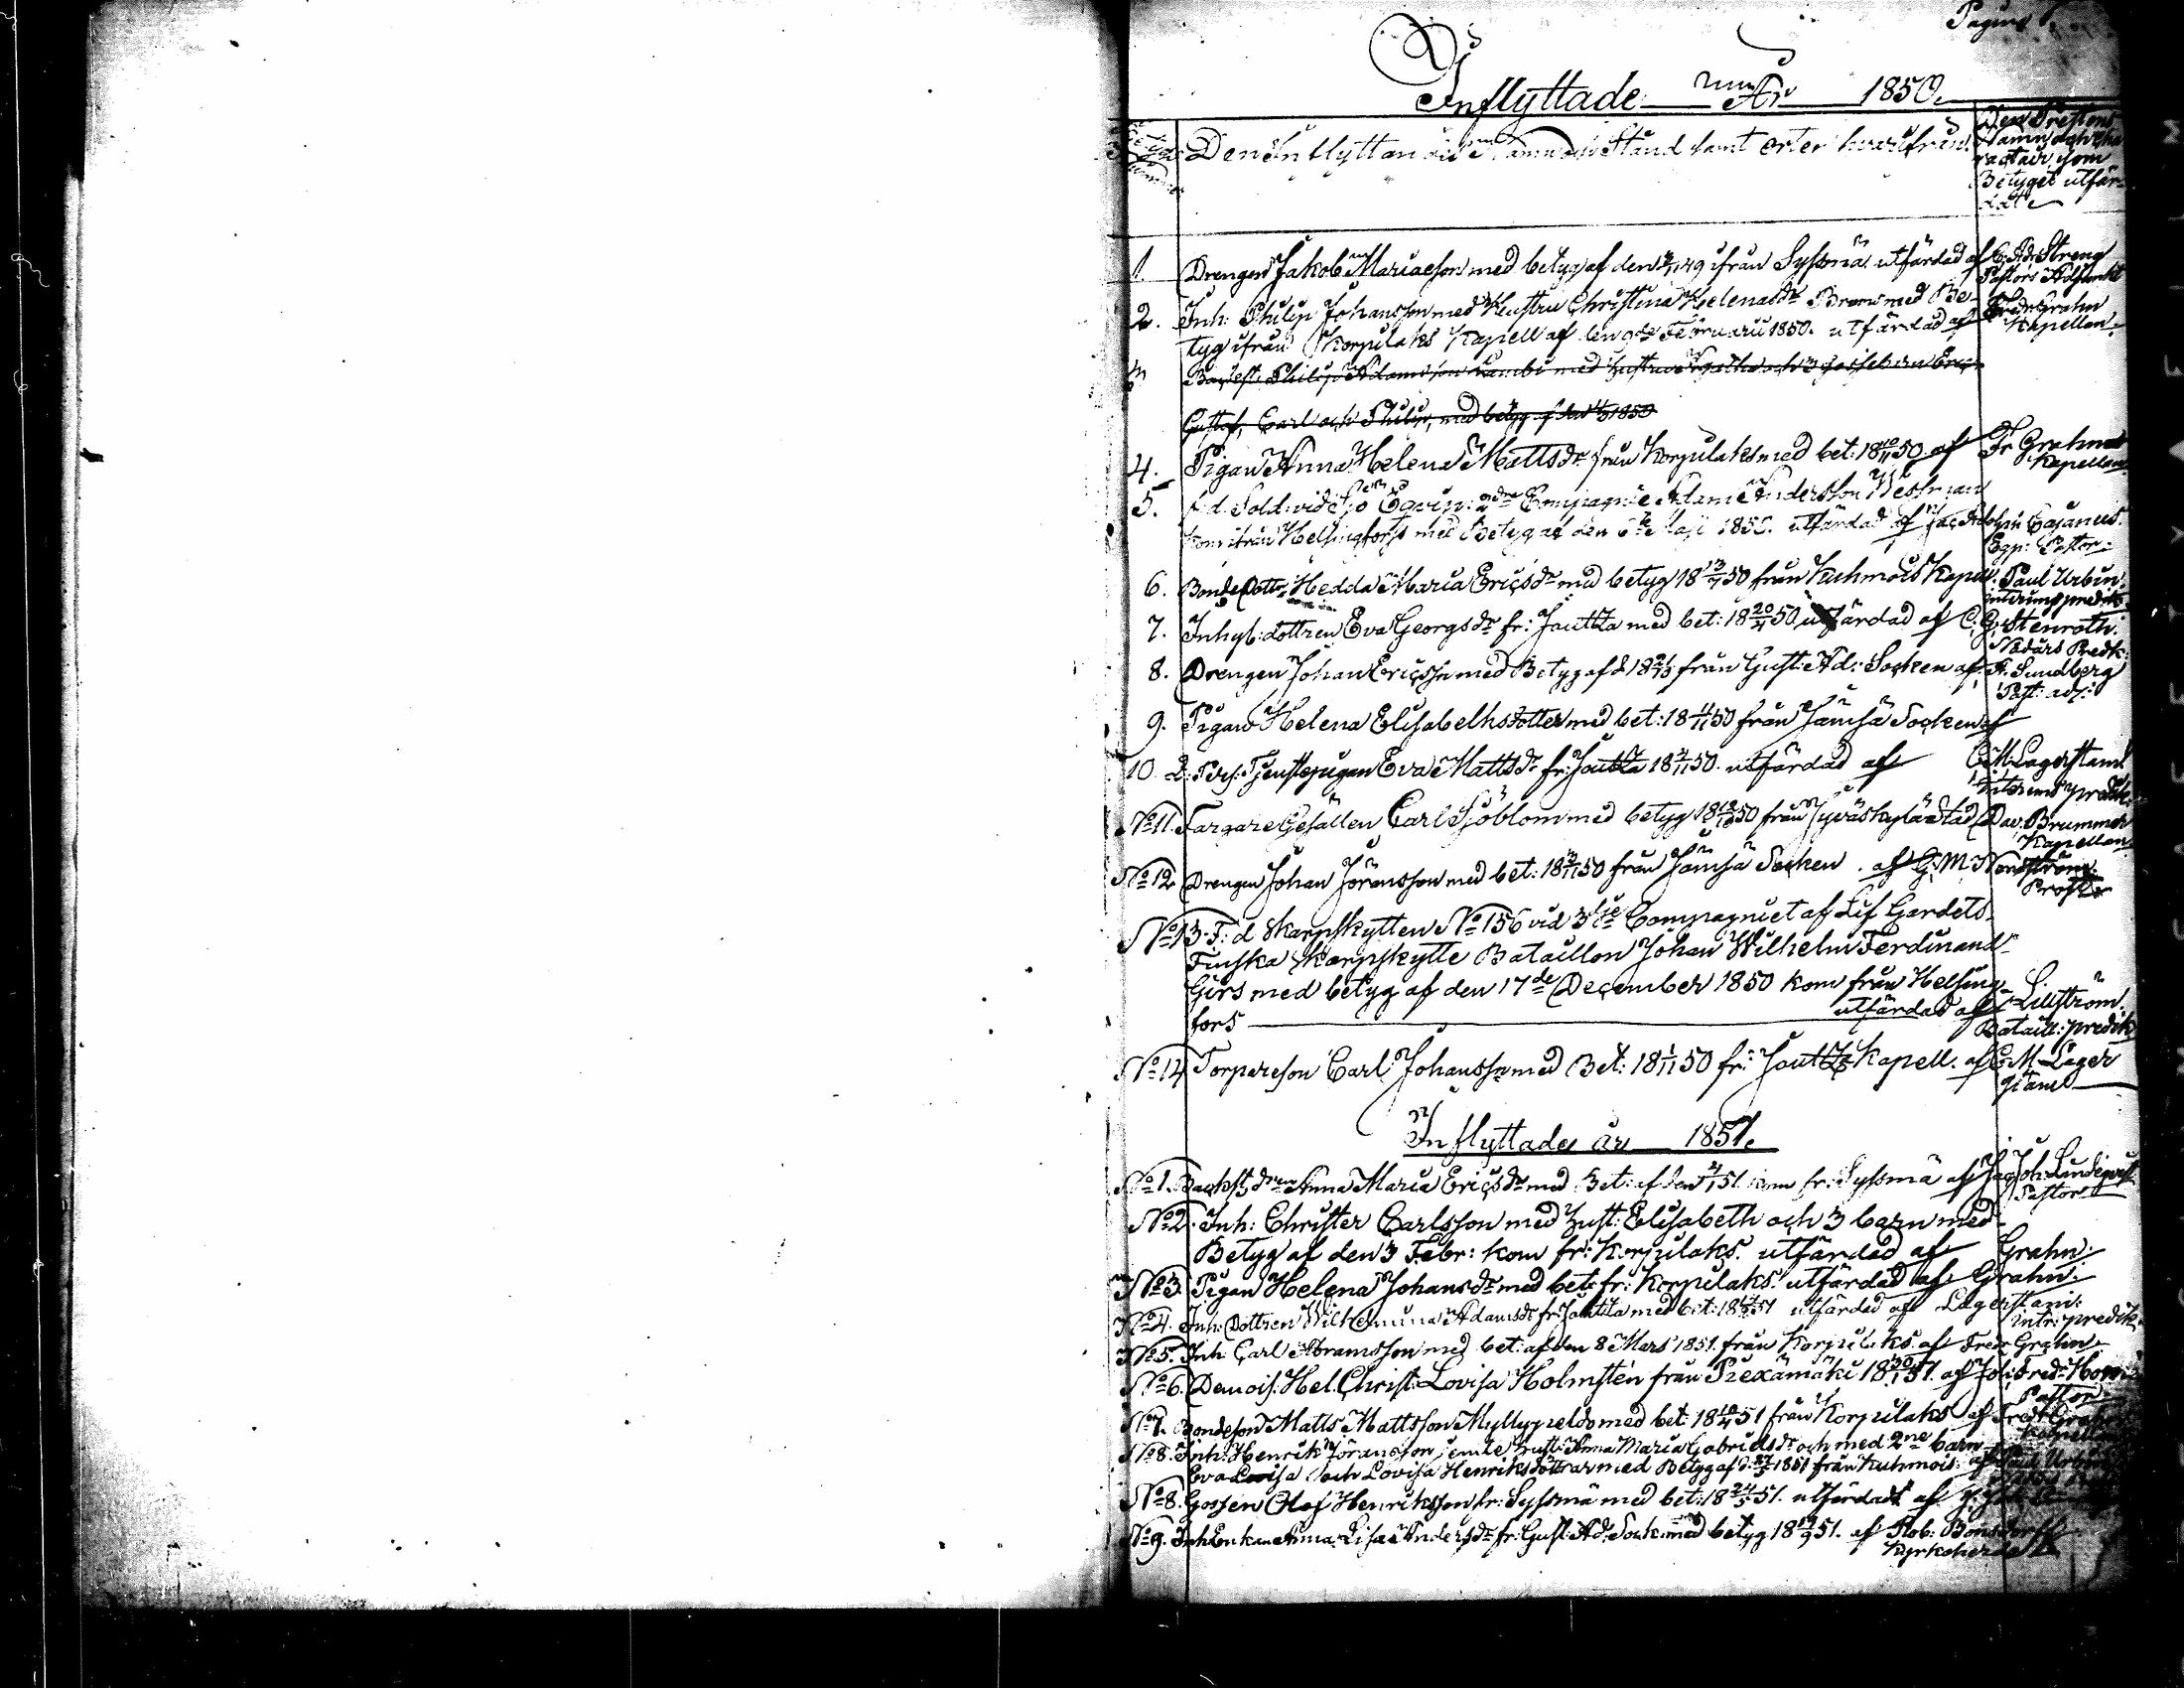 Pagina
Inflyttade År 1850.
Betygets Nummer
Den Inflyttandes Namn och Stånd samt orten hvarifrån.
Den Prestens Namn och cha
ractair, som
Betyget utfär-
dat
1. Drengen Jakob Mariaeson med betyg af den 49 ifrån Sysmä utfärdad af C. Ad. Streng
Pastors Adjunkt
2. Inh: Philip Johansson med Hustru Christina Helenasdr med Be-
tyg ifrån Korpilaks Kapell af den 9de Februarii 1850. utfärdad af Fredr Grahn
Kapellan.
3 Philip Adamsson med hustru Agatha och 3
Gustaf, Carl och Philip, med betyg af den 1850
4. Pigan Anna Helena Mattsdr från Korpilaks med bet: 18 10/11 50. af Fr Grahn
Kapellan.
5. f.d. Sold: vid Sjö Eqvip: 2dra Compagnie Adam Andersson Wessman
kom ifrån Helsingfors med Betyg af den 6te Maji 1850. utfärdad af Jac. Adolph Cajanus.
Eqp: Pastor.
6. Bonde Dottr: Hedda Maria Ericsdr med betyg 18 50 från Kuhmois Kapell. Paul Urbin.
interims predik:
7. Inhys: dottren Eva Georgsdr fr: Joutza med bet: 18 20/4 50 utfärdad af C. G. Stenroth.
Nådårs Predk:
8. Drengen Johan Ericssn med Betyg af d. 18 från Gust: Ad: Socken af A. Sundberg
Past: adj:
9. Pigan Helena Elisabethsdotter med bet: 18 50 från Jämsä Socken af
10. Tjenstepigan Eva Mattsdr fr: Joutza 18 50. utfärdad af C: M. Lagerstam
interims predik.
No 11. Färgare Gesällen Carl Sjöblom med betyg 18 50 från Jyväskylä Stad Dav. Brummer
Kapellan.
No 12 Drengen Johan Jöransson med bet: 18 50 från Jämsä Socken. af G: M: Nordström.
Prost
No 13. F: d Skarpskytten No 156 vid 3dje Compagniet af Lif Gardets
Finska Skarpskytte Bataillon Johan Wilhelm Ferdinand
Girs med betyg af den 17de December 1850 kom från Helsing-
fors utfärdad af Lillström.
Bataill: predik
No 14 Torpareson Carl Johanssn med Bet: 18 1/11 50 fr: Joutza Kapell. af C. M. Lager
stam
Inflyttade år 1851.
No 1. Anna Maria Ericsdr med Bet: af den 51. kom fr: Sysmä af Jac Joh: Lindeqvist
Pastor
No 2. Inh: Christer Carlsson med Hust: Elisabeth och 3 barn med
Betyg af den 3 Febr: kom fr: Korpilaks. utfärdad af Grahn.
No 3. Pigan Helena Johansdr med bet: fr: Korpilaks. utfärdad af Grahn.
No 4. Inh: Dottren Wilhelmina Adamsdr fr: Joutza med bet: 18 51 utfärdad af Lagerstam:
intr: predik.
No 5. Inh. Carl Abramsson med bet: af den 8 Mars 1851. från Korpilaks. af Fredr Grahn.
No 6. Demois: Hel. Christ: Lovisa Holmstén från Piexämäki 18 51. af Joh: Fredr
Pastor.
No 7. Bondeson Matts Mattsson Myllypeldo med bet: 18 51 från Korpilaks af Fredr Grahn
Kapellan
No 8. Inh: Henrik Jöransson jemte hust: Anna Maria Gabrielsdr och med 2ne barn
Eva Lovisa och Lovisa Henriksdöttrar med Betyg af d: 1851 från Kuhmois. af Paul Urbin
No 8. Gossen Olof Henriksson fr: Sysmä med bet: 18 24/5 51. utfärdadt af
No 9. Inh Enkan Anna Lisa Andersdr fr: Gust: Ad: Sock: med betyg 18 51. af Rob: Bonsdorff
Kyrkoherde